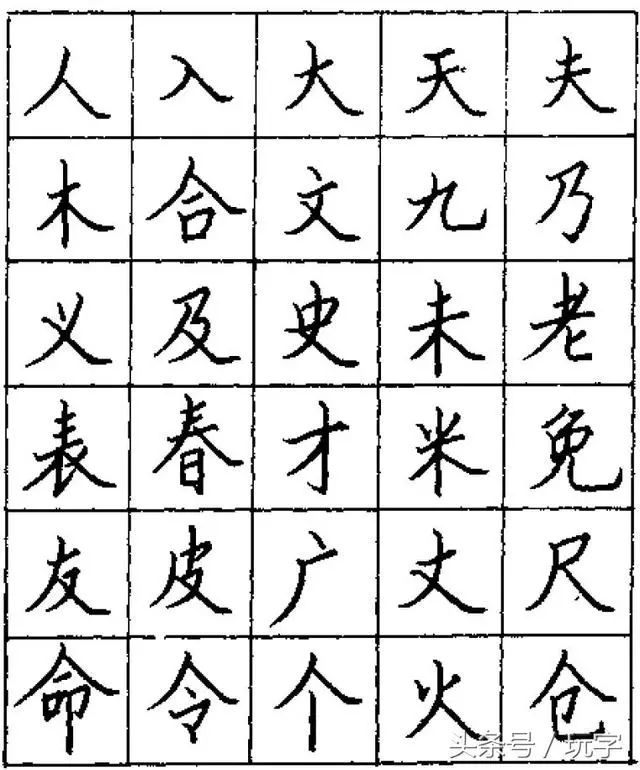 人 入 大 天 夫
木 合 文 九 乃
义 及 史 未 老
表 春 才 米 免
友 皮 广 丈 尺
命 令 个 火 仓
头条号/玩字